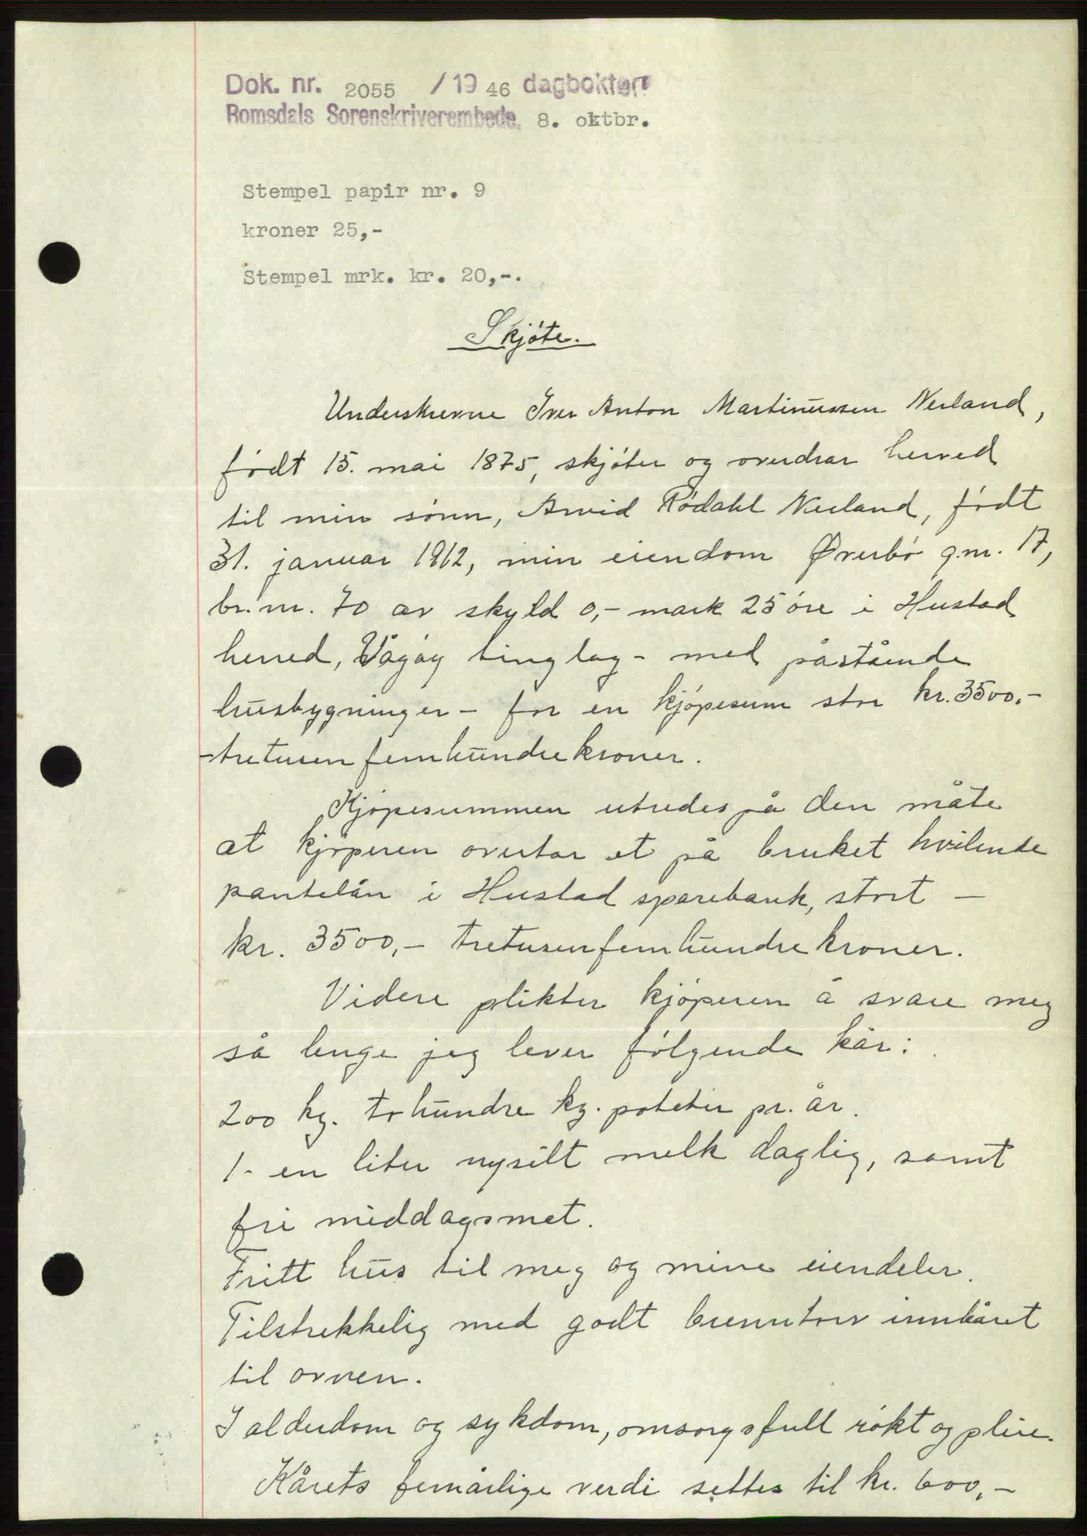 Dok. nr. 2055 /1946 dagboken
Romsdals Sorenskriverembede, 8. oktbr.
Stempel papir nr. 9
kroner 25,-
Stempel mrk. kr. 20,-.
Skjøte.
Underskrevne Iver Anton Martinussen Nerland,
født 15. mai 1875, skjøter og overdrar herved
til min sønn, Arvid Rødahl Nerland, født
31. januar 1912, min eiendom Øverbø g.nr. 17,
br.nr. 70 av skyld 0,- mark 25 øre i Hustad
herred, Vågøy tinglag - med påstående
husbygninger - for en kjøpesum stor kr. 3500.-
-tretusenfemhundrekroner.
Kjøpesummen utredes på den måte
at kjøperen overtar et på bruket hvilende
pantelån i Hustad sparebank, stort -
kr. 3500,- tretusenfemhundrekroner.
Videre plikter kjøperen å svare meg
så lenge jeg lever følgende kår:
200 kg. tohundre kg. poteter pr. år.
1- en liter nysilt melk daglig, samt
fri middagsmat.
Fritt hus til meg og mine eiendeler.
Tilstrekkelig med godt brenntorv innbåret
til ovnen.
I alderdom og sykdom, omsorgsfull røkt og pleie.
Kårets femårlige verdi settes til kr. 600,-